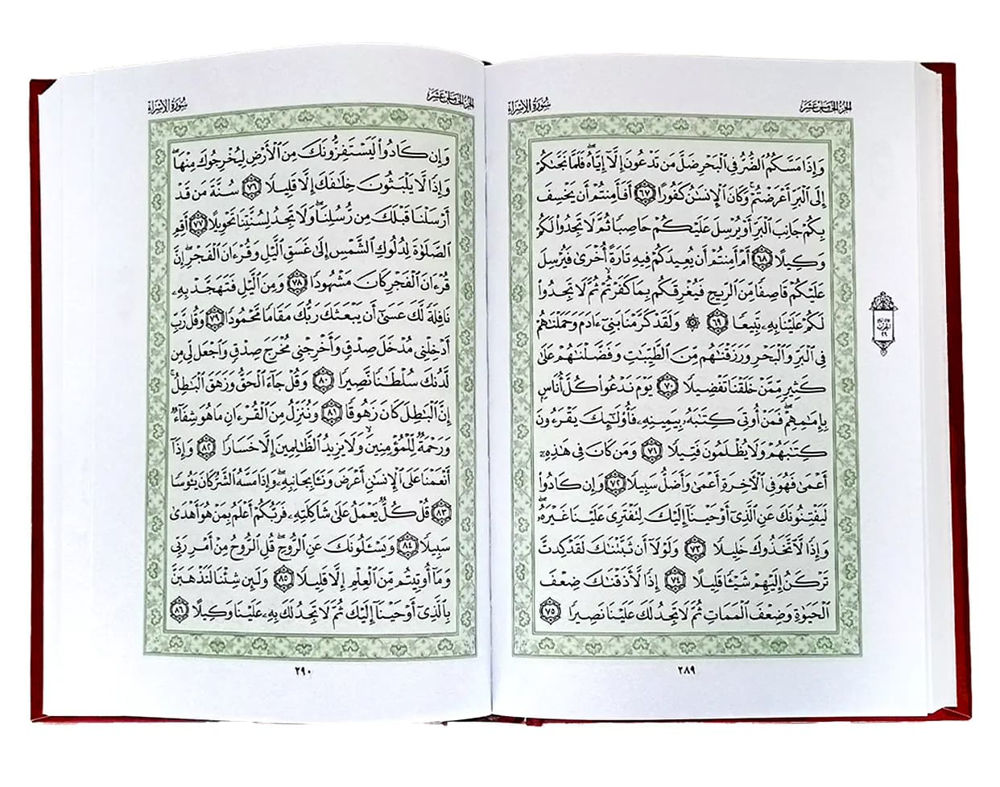 الجزء الخامس عشر
سورة الإسراء
وَإِذَا مَسَّكُمُ ٱلضُّرُّ فِي ٱلۡبَحۡرِ ضَلَّ مَن تَدۡعُونَ إِلَّآ إِيَّاهُۖ فَلَمَّا نَجَّىٰكُمۡ
إِلَى ٱلۡبَرِّ أَعۡرَضۡتُمۡۚ وَكَانَ ٱلۡإِنسَٰنُ كَفُورًا ٦٧ أَفَأَمِنتُمۡ أَن يَخۡسِفَ
بِكُمۡ جَانِبَ ٱلۡبَرِّ أَوۡ يُرۡسِلَ عَلَيۡكُمۡ حَاصِبٗا ثُمَّ لَا تَجِدُواْ لَكُمۡ
وَكِيلًا ٦٨ أَمۡ أَمِنتُمۡ أَن يُعِيدَكُمۡ فِيهِ تَارَةً أُخۡرَىٰ فَيُرۡسِلَ
عَلَيۡكُمۡ قَاصِفٗا مِّنَ ٱلرِّيحِ فَيُغۡرِقَكُم بِمَا كَفَرۡتُمۡ ثُمَّ لَا تَجِدُواْ
لَكُمۡ عَلَيۡنَا بِهِۦ تَبِيعٗا ٦٩ ۞ وَلَقَدۡ كَرَّمۡنَا بَنِيٓ ءَادَمَ وَحَمَلۡنَٰهُمۡ
فِي ٱلۡبَرِّ وَٱلۡبَحۡرِ وَرَزَقۡنَٰهُم مِّنَ ٱلطَّيِّبَٰتِ وَفَضَّلۡنَٰهُمۡ عَلَىٰ
كَثِيرٖ مِّمَّنۡ خَلَقۡنَا تَفۡضِيلٗا ٧٠ يَوۡمَ نَدۡعُواْ كُلَّ أُنَاسِۭ
بِإِمَٰمِهِمۡۖ فَمَنۡ أُوتِيَ كِتَٰبَهُۥ بِيَمِينِهِۦ فَأُوْلَٰٓئِكَ يَقۡرَءُونَ
كِتَٰبَهُمۡ وَلَا يُظۡلَمُونَ فَتِيلٗا ٧١ وَمَن كَانَ فِي هَٰذِهِۦٓ
أَعۡمَىٰ فَهُوَ فِي ٱلۡأٓخِرَةِ أَعۡمَىٰ وَأَضَلُّ سَبِيلٗا ٧٢ وَإِن كَادُواْ
لَيَفۡتِنُونَكَ عَنِ ٱلَّذِيٓ أَوۡحَيۡنَآ إِلَيۡكَ لِتَفۡتَرِيَ عَلَيۡنَا غَيۡرَهُۥۖ
وَإِذٗا لَّٱتَّخَذُوكَ خَلِيلٗا ٧٣ وَلَوۡلَآ أَن ثَبَّتۡنَٰكَ لَقَدۡ كِدتَّ
تَرۡكَنُ إِلَيۡهِمۡ شَيۡـٔٗا قَلِيلًا ٧٤ إِذٗا لَّأَذَقۡنَٰكَ ضِعۡفَ
ٱلۡحَيَوٰةِ وَضِعۡفَ ٱلۡمَمَاتِ ثُمَّ لَا تَجِدُ لَكَ عَلَيۡنَا نَصِيرٗا ٧٥
٢٨٩
الجزء الخامس عشر
سورة الإسراء
وَإِن كَادُواْ لَيَسۡتَفِزُّونَكَ مِنَ ٱلۡأَرۡضِ لِيُخۡرِجُوكَ مِنۡهَاۖ
وَإِذٗا لَّا يَلۡبَثُونَ خِلَٰفَكَ إِلَّا قَلِيلٗا ٧٦ سُنَّةَ مَن قَدۡ
أَرۡسَلۡنَا قَبۡلَكَ مِن رُّسُلِنَاۖ وَلَا تَجِدُ لِسُنَّتِنَا تَحۡوِيلًا ٧٧ أَقِمِ
ٱلصَّلَوٰةَ لِدُلُوكِ ٱلشَّمۡسِ إِلَىٰ غَسَقِ ٱلَّيۡلِ وَقُرۡءَانَ ٱلۡفَجۡرِۖ إِنَّ
قُرۡءَانَ ٱلۡفَجۡرِ كَانَ مَشۡهُودٗا ٧٨ وَمِنَ ٱلَّيۡلِ فَتَهَجَّدۡ بِهِۦ
نَافِلَةٗ لَّكَ عَسَىٰٓ أَن يَبۡعَثَكَ رَبُّكَ مَقَامٗا مَّحۡمُودٗا ٧٩ وَقُل رَّبِّ
أَدۡخِلۡنِي مُدۡخَلَ صِدۡقٖ وَأَخۡرِجۡنِي مُخۡرَجَ صِدۡقٖ وَٱجۡعَل لِّي مِن
لَّدُنكَ سُلۡطَٰنٗا نَّصِيرٗا ٨٠ وَقُلۡ جَآءَ ٱلۡحَقُّ وَزَهَقَ ٱلۡبَٰطِلُۚ
إِنَّ ٱلۡبَٰطِلَ كَانَ زَهُوقٗا ٨١ وَنُنَزِّلُ مِنَ ٱلۡقُرۡءَانِ مَا هُوَ شِفَآءٞ
وَرَحۡمَةٞ لِّلۡمُؤۡمِنِينَ وَلَا يَزِيدُ ٱلظَّٰلِمِينَ إِلَّا خَسَارٗا ٨٢ وَإِذَآ
أَنۡعَمۡنَا عَلَى ٱلۡإِنسَٰنِ أَعۡرَضَ وَنَـَٔا بِجَانِبِهِۦ وَإِذَا مَسَّهُ ٱلشَّرُّ كَانَ يَـُٔوسٗا
٨٣ قُلۡ كُلّٞ يَعۡمَلُ عَلَىٰ شَاكِلَتِهِۦ فَرَبُّكُمۡ أَعۡلَمُ بِمَنۡ هُوَ أَهۡدَىٰ
سَبِيلٗا ٨٤ وَيَسۡـَٔلُونَكَ عَنِ ٱلرُّوحِۖ قُلِ ٱلرُّوحُ مِنۡ أَمۡرِ رَبِّي
وَمَآ أُوتِيتُم مِّنَ ٱلۡعِلۡمِ إِلَّا قَلِيلٗا ٨٥ وَلَئِن شِئۡنَا لَنَذۡهَبَنَّ
بِٱلَّذِيٓ أَوۡحَيۡنَآ إِلَيۡكَ ثُمَّ لَا تَجِدُ لَكَ بِهِۦ عَلَيۡنَا وَكِيلًا ٨٦
٢٩٠